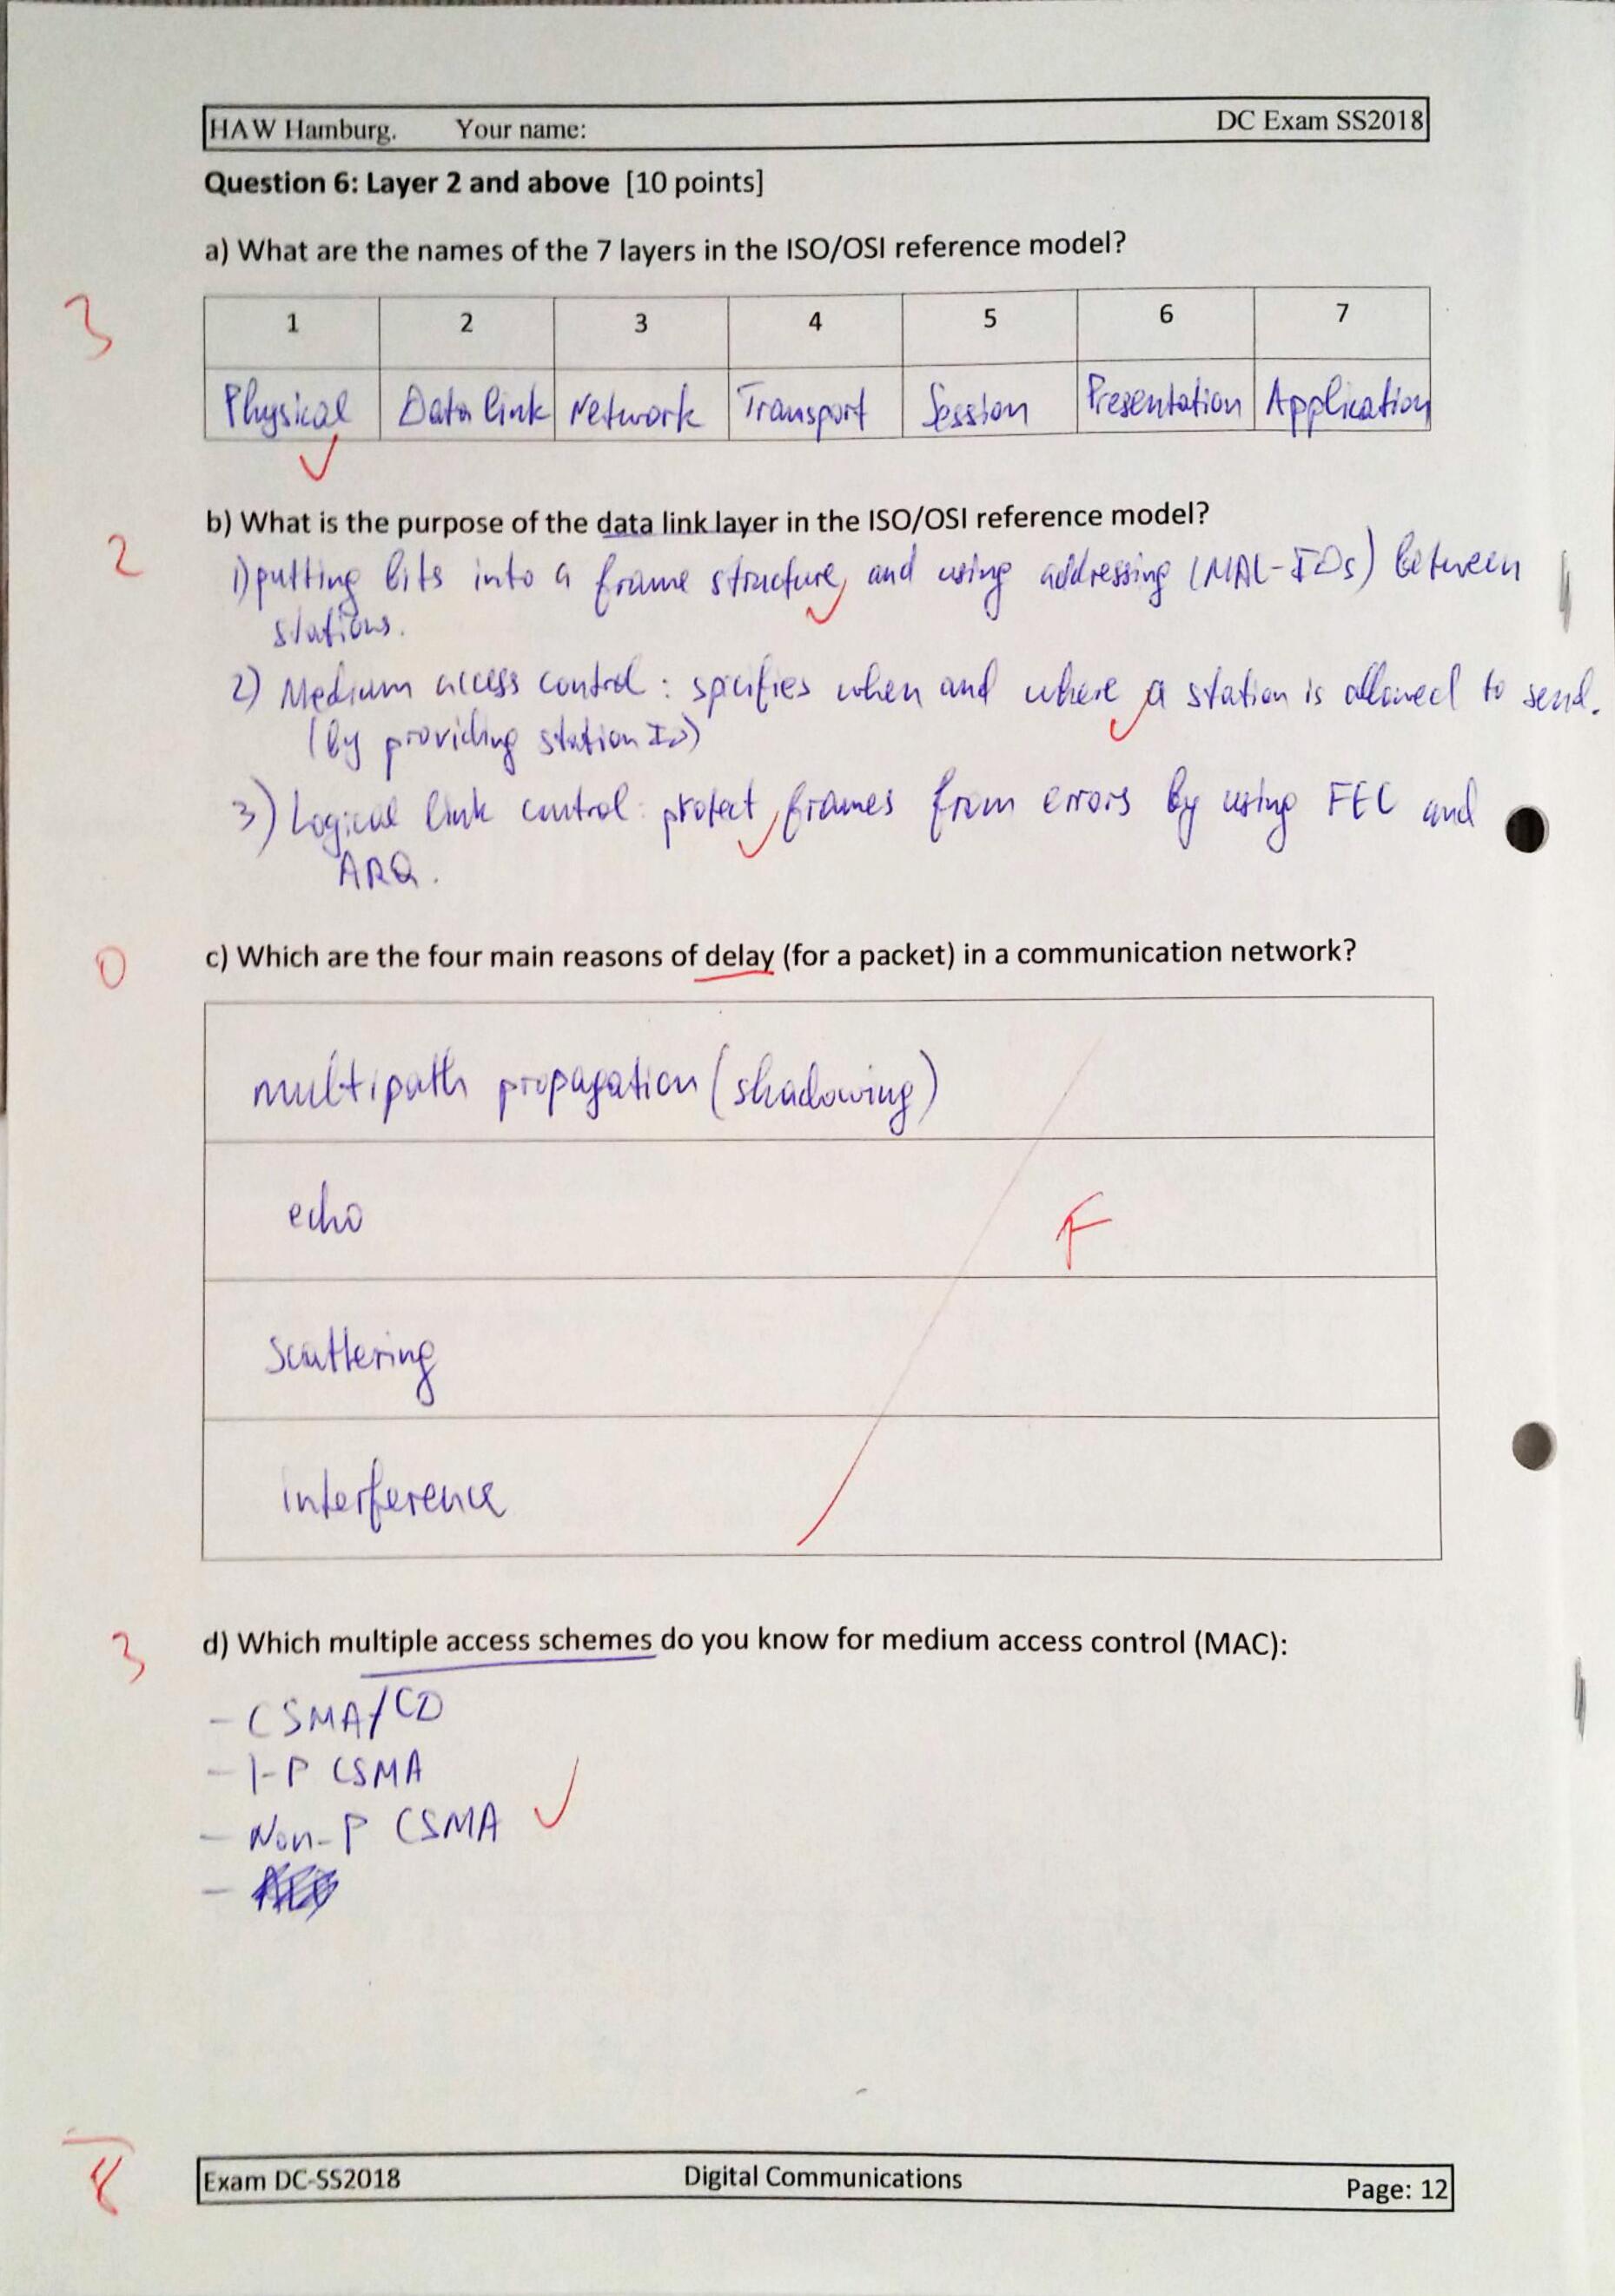 HAW Hamburg. Your name: DC Exam SS2018
Question 6: Layer 2 and above [10 points]
a) What are the names of the 7 layers in the ISO/OSI reference model?
3
1 2 3 4 5 6 7
Physical Data link Network Transport Session Presentation Application
b) What is the purpose of the data link layer in the ISO/OSI reference model?
2
1) putting bits into a frame structure, and using addressing (MAC-IDs) between
stations.
2) Medium access control : specifies when and where a station is allowed to send.
(by providing station ID)
3) Logical link control: protect frames from errors by using FEC and
ARQ.
0
c) Which are the four main reasons of delay (for a packet) in a communication network?
multipath propagation (shadowing)
echo
F
scattering
interference
3
d) Which multiple access schemes do you know for medium access control (MAC):
- CSMA/CD
- 1-P CSMA
- Non-P CSMA
-
8
Exam DC-SS2018 Digital Communications Page: 12